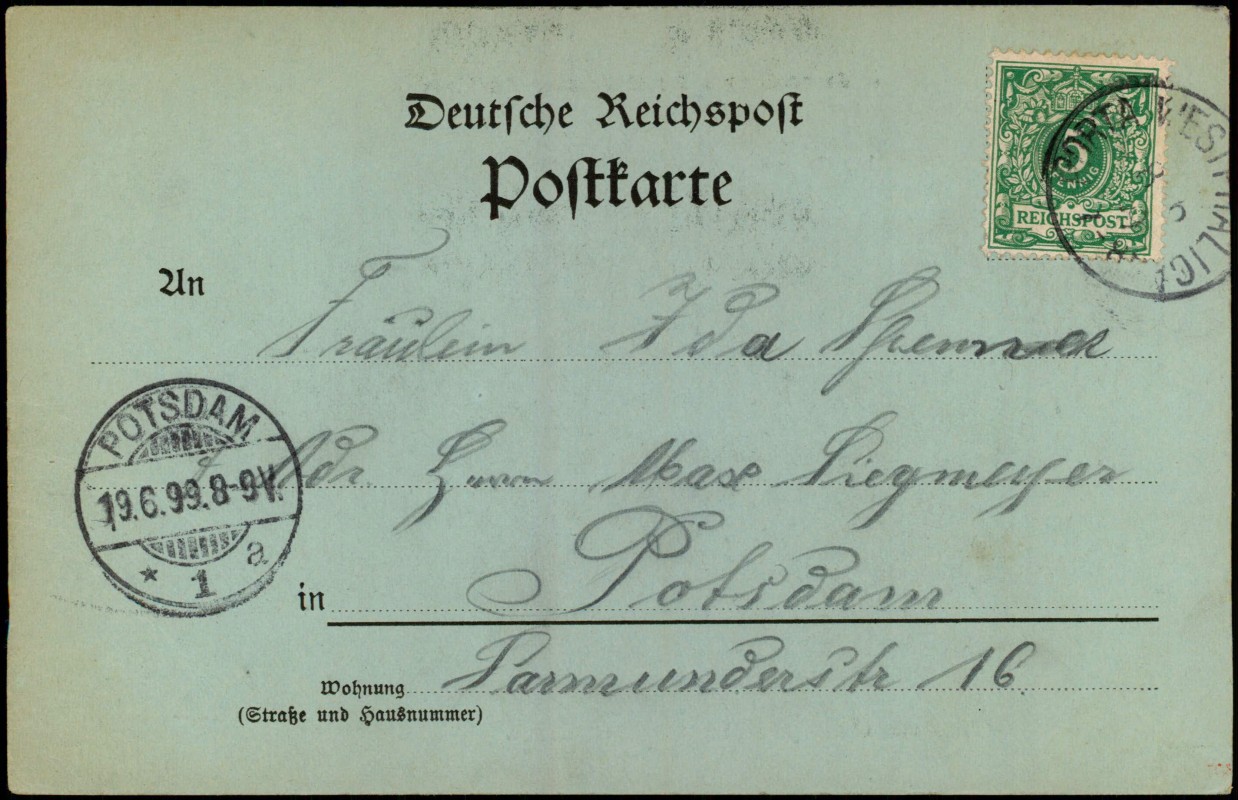 Deutsche Reichspost
Postkarte
5
PFENNIG
REICHSPOST
PORTA WESTFALICA
An
Fräulein Ida
Adr. Herrn Max Siegmeyer
POTSDAM
19.6.99.8-9V.
* 1 a
in Potsdam
Wohnung 16
(Straße und Hausnummer)